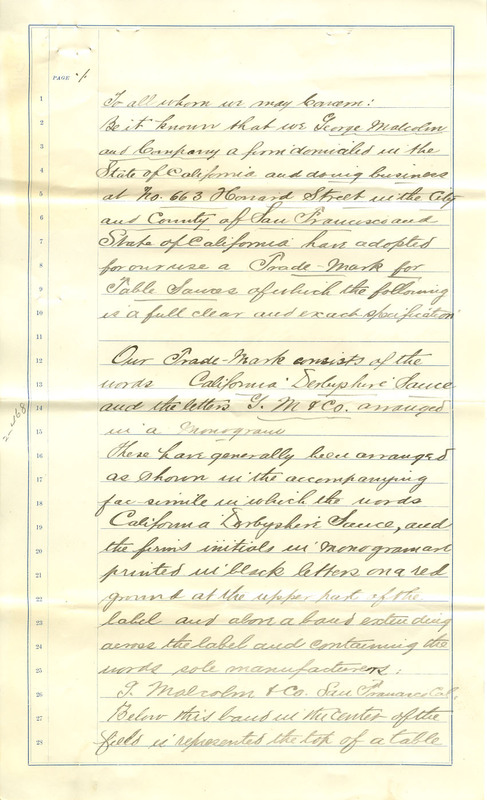 PAGE 1
1 To all whom we may Concern:
2 Be it known that we George Malcolm
3 and Company a firm domiciled in the
4 State of California and doing business
5 at No. 663 Howard Street in the City
6 and County of San Francisco and
7 State of California have adopted
8 for our use a Trade-Mark for
9 Table Sauces of which the following
10 is a full clear and exact specification
11
12 Our Trade-Mark consists of the
13 words California Derbyshire Sauce
14 and the letters G. M & Co. arranged
15 in a monogram
16 These have generally been arranged
17 as shown in the accompanying
18 fac-simile in which the words
19 California Derbyshire Sauce, and
20 the firms initials in monogram are
21 printed in black letters on a red
22 ground at the upper part of the
23 label and along a band extending
24 across the label and containing the
25 words sole manufacturers:
26 G. Malcolm & Co. San Francisco Cal.
27 Below this band in the center of the
28 field is represented the top of a table
2-468